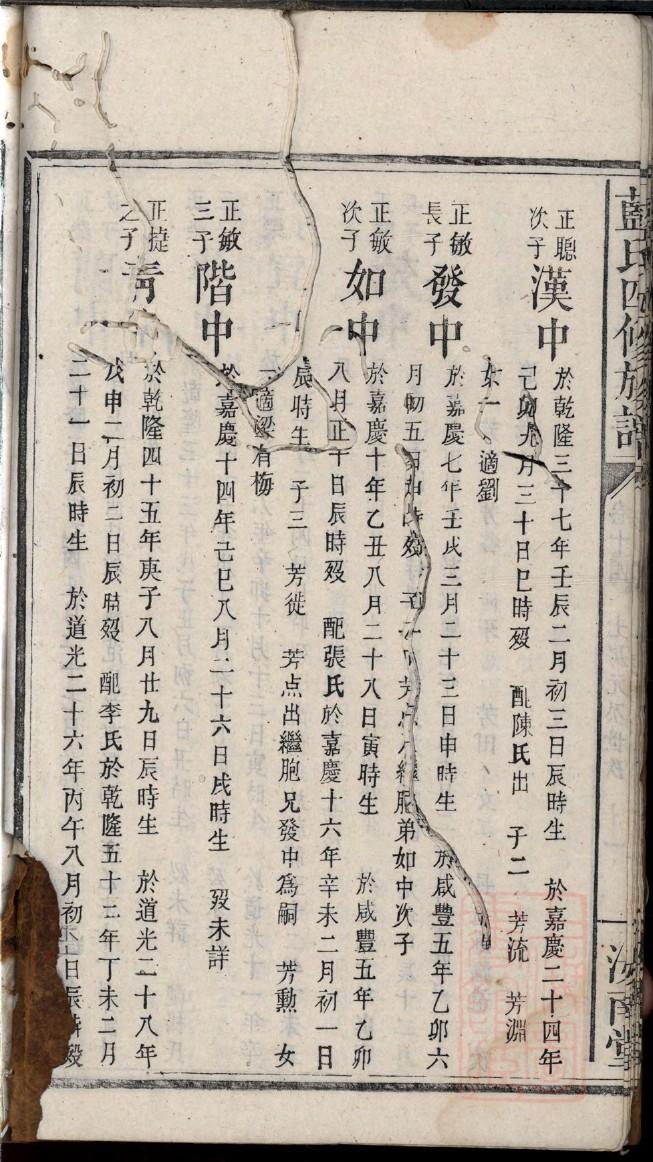 藍氏四修族譜
正聰次子漢中
於乾隆三十七年壬辰二月初三日辰時生 於嘉慶二十四年
己卯九月三十日巳時歿 配陳氏出 子二 芳流 芳淵
女一 適劉
正敏長子發中
於嘉慶七年壬戌三月二十三日申時生 於咸豐五年乙卯六
月初五日 時歿 芳点 繼胞弟如中次子
正敏次子如中
於嘉慶十年乙丑八月二十八日寅時生 於咸豐五年乙卯
八月 十日辰時歿 配張氏於嘉慶十六年辛未二月初一日
辰時生 子三 芳徙 芳点出繼胞兄發中爲嗣 芳勲 女
一適梁有梅
正敏三子階中
於嘉慶十四年己巳八月二十六日戌時生 歿未詳
正捷之子
於乾隆四十五年庚子八月廿九日辰時生 於道光二十八年
戊申二月初二日辰時歿 配李氏於乾隆五十二年丁未二月
二十一日辰時生 於道光二十六年丙午八月初 日辰時歿